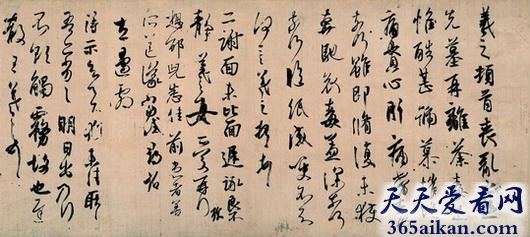 羲之頓首喪亂之極
先墓再離荼毒追
惟酷甚號慕摧絕
痛貫心肝痛當奈何
奈何雖即脩復未獲
奔馳哀毒益深奈何
奈何臨紙感哽不知
何言羲之頓首頓首
二謝面未比面遲詠良
靜羲之女愛再拜
想邵兒悉佳前患者善
所送議當試尋省
左邊劇
得示知足下猶未佳耿耿
吾亦劣劣明日出乃行
不欲觸霧故也遲
散王羲之頓首
天天爱看网
365aikan.com